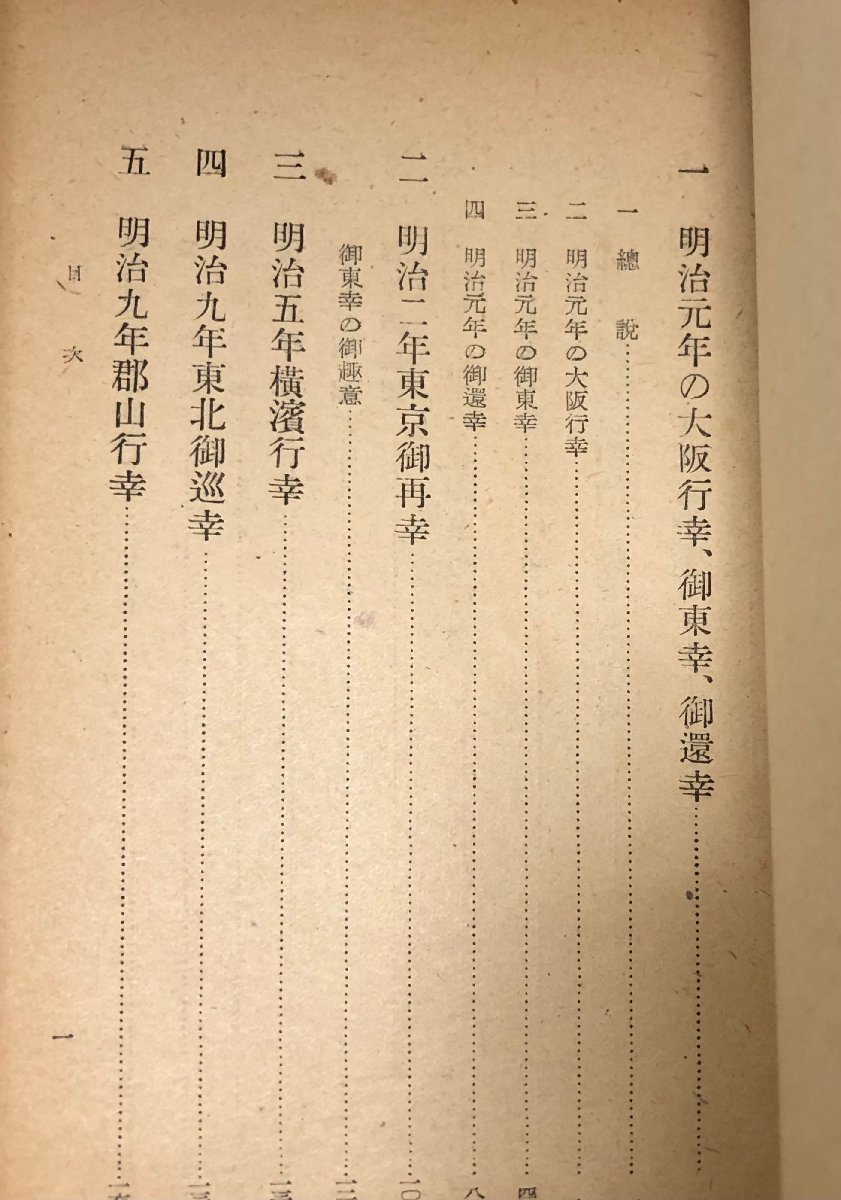 一 明治元年の大阪行幸、御東幸、御還幸
一 總說
二 明治元年の大阪行幸
三 明治元年の御東幸 四
四 明治元年の御還幸 八
二 明治二年東京御再幸 一〇
御東幸の御趣意
三 明治五年橫濱行幸
四 明治九年東北御巡幸
五 明治九年郡山行幸
目次
一